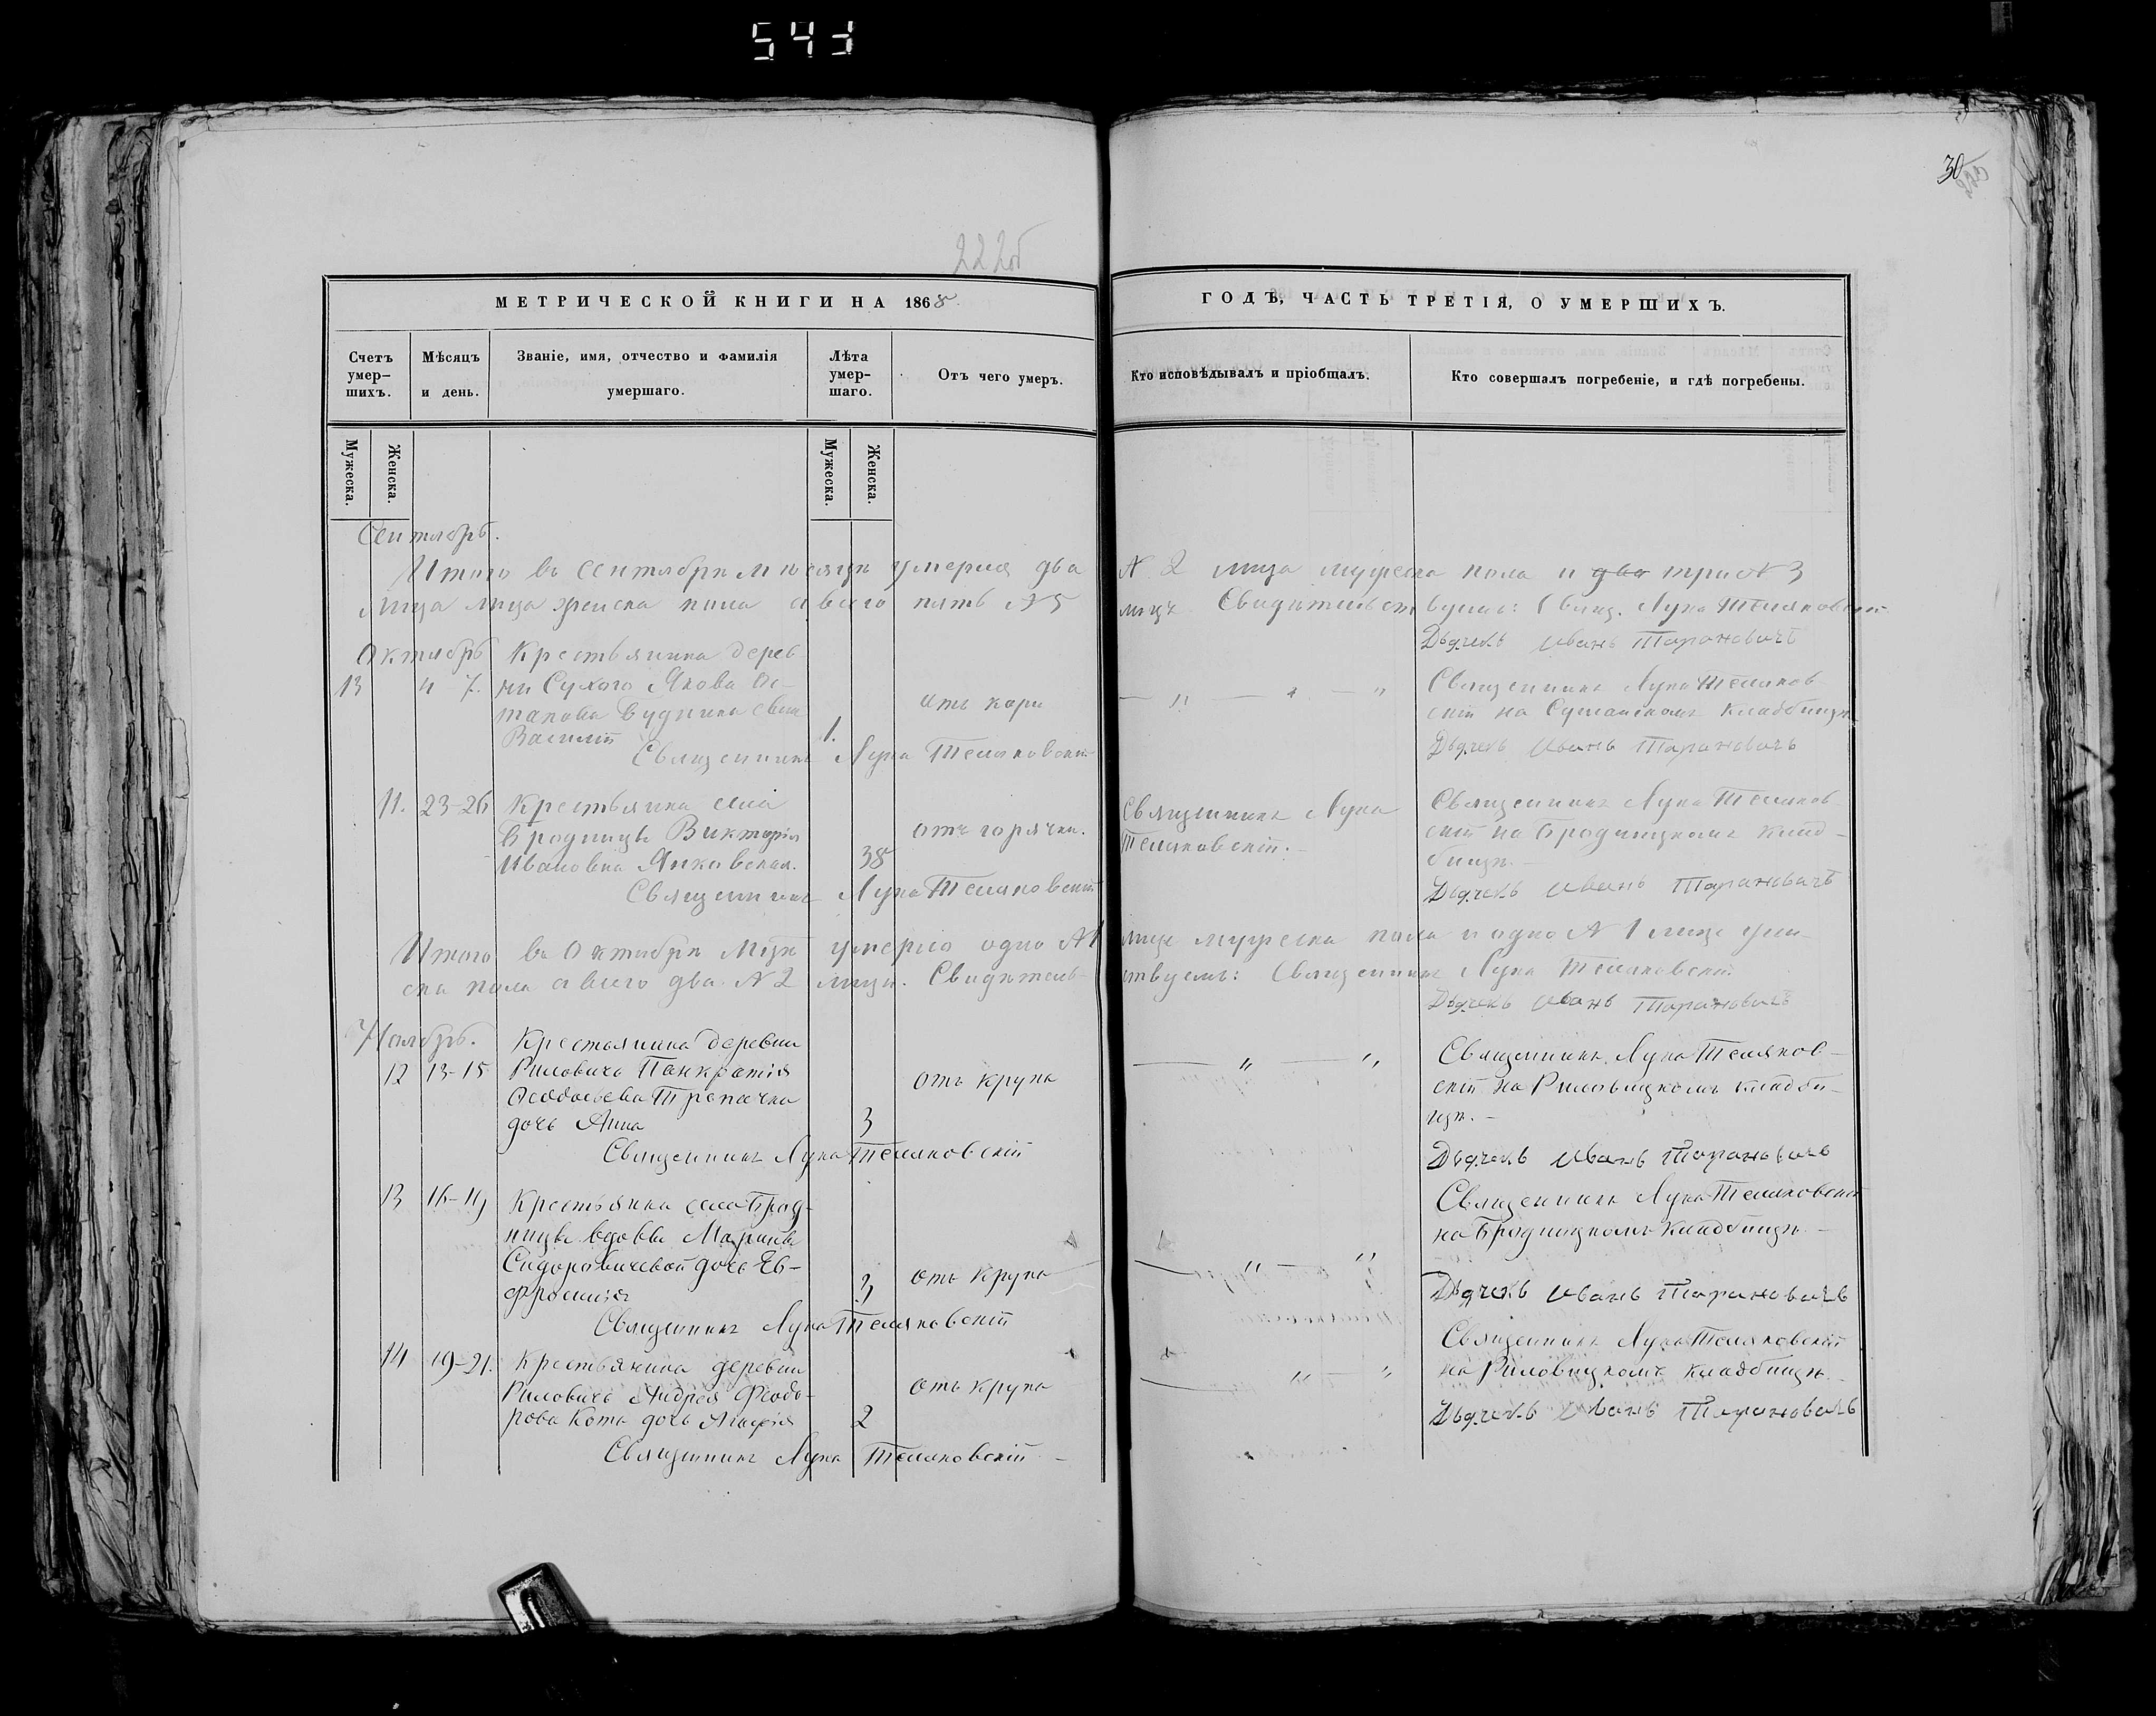 543
30
222об
МЕТРИЧЕСКОЙ КНИГИ НА 1868
ГОДЪ, ЧАСТЬ ТРЕТІЯ, О УМЕРШИХЪ.
Счетъ умер-шихъ.
Мѣсяцъ и день.
Званіе, имя, отчество и фамилія умершаго.
Лѣта умер-шаго.
Отъ чего умеръ.
Кто исповѣдывалъ и пріобщалъ.
Кто совершалъ погребеніе, и гдѣ погребены.
Мужеска.
Женска.
Мужеска.
Женска.
Сентябрь.
Итого въ Сентябрѣ мѣсяцѣ умерло два № 2 лица мужеска пола и два три № 3
лица женска пола а всего пять № 5 лицъ Свидѣтельствуемъ: Свящ. Лука Теляковскій
Дьячекъ Иванъ Тарановичъ
Октябрь Крестьянина дерев
13 4 7. ни Сухого Якова Ос- отъ кори — " — " — " Священникъ Лука Теляков
тапова сын скій на Сушанскомъ кладбищѣ
Василій 1.
Священникъ Лука Теляковскій Дьячекъ Иванъ Тарановичъ
11. 23-26 Крестьянка села Священникъ Лука Священникъ Лука Теляков
Бродницы Викторія отъ горячки. Теляковскій. — скій на Бродницкомъ клад-
Ивановна Янковская. 38 бищѣ. —
Священникъ Лука Теляковскій Дьячекъ Иванъ Тарановичъ
Итого въ Октябрѣ м-цѣ умерло одно № 1 лице мужеска пола и одно № 1 лице жен-
ска пола а всего два № 2 лица. Свидѣтельствуемъ: Священникъ Лука Теляковскій
Дьячекъ Иванъ Тарановичъ
Ноябрь. Крестьянина деревни Священникъ Лука Теляков-
12 13-15 Рыловичъ Панкратія отъ крупа — " — " скій на Рыловицкомъ кладби-
Трепачка щѣ. —
дочь Анна 3
Священникъ Лука Теляковскій Дьячекъ Иванъ Тарановичъ
13 16-19 Крестьянки села Брод- Священникъ Лука Теляковскій
ницы вдовы Марины на Бродницкомъ кладбищѣ —
Сидоровичевой дочь Ев- 3 отъ крупа — " — "
фросинія Дьячекъ Иванъ Тарановичъ
Священникъ Лука Теляковскій
14 19-21. Крестьянина деревни Священникъ Лука Теляковскій
Рыловичъ Андрея Ѳеодо- отъ крупа — " — " на Рыловицкомъ кладбищѣ —
рова Котъ дочь Марія 2 Дьячекъ Иванъ Тарановичъ
Священникъ Лука Теляковскій —